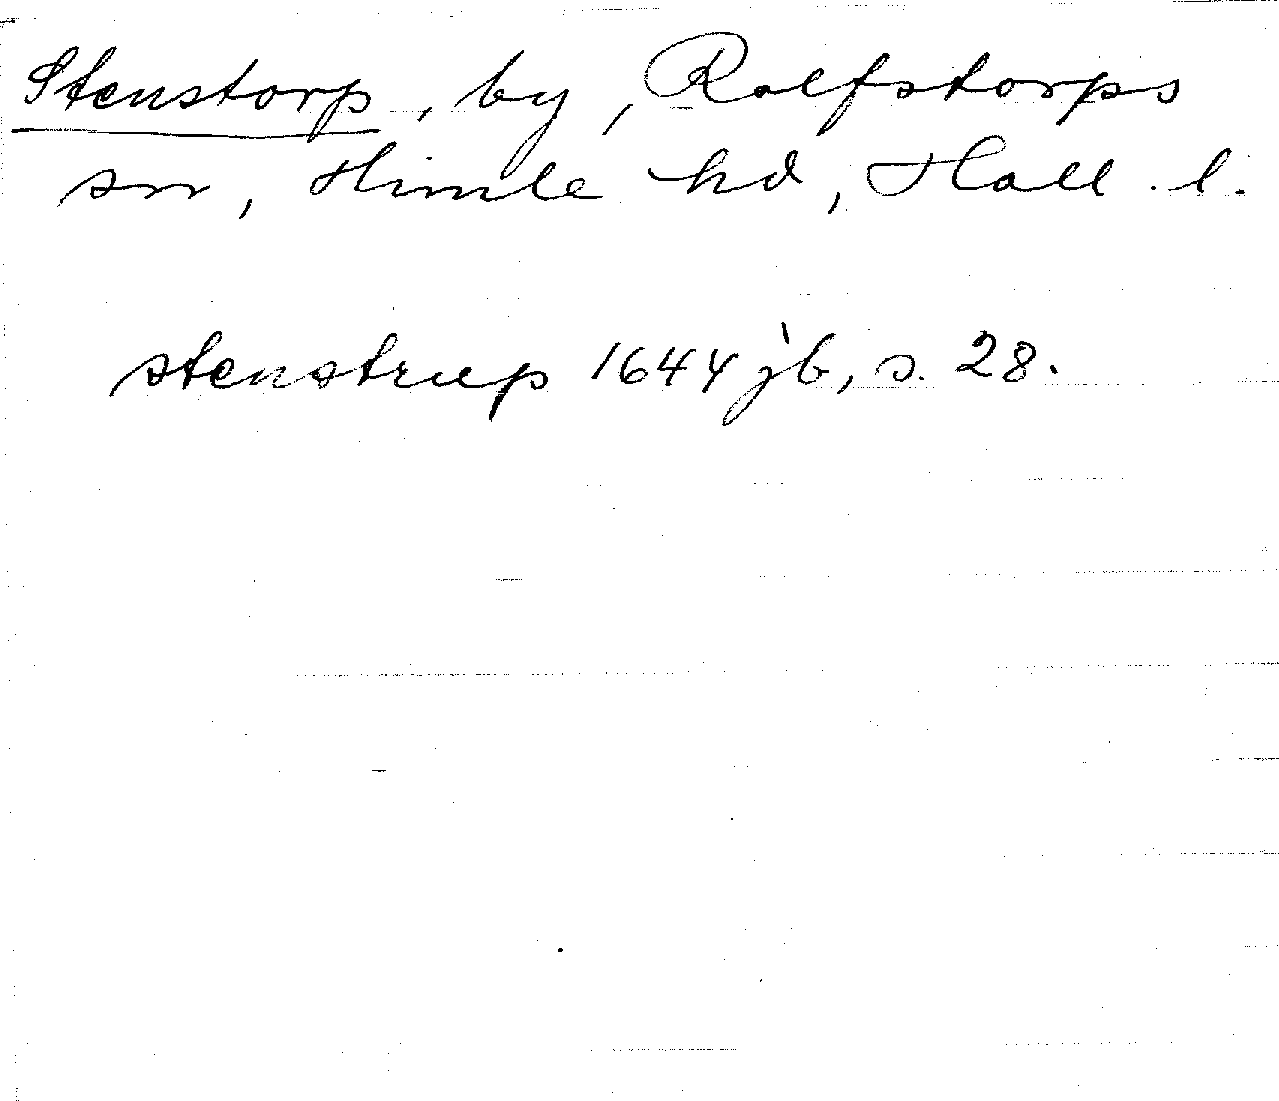 Stenstorp, by, Rolfstorps
sn, Himle hd, Hall. l.
stenstrup 1644 jb, s. 28.